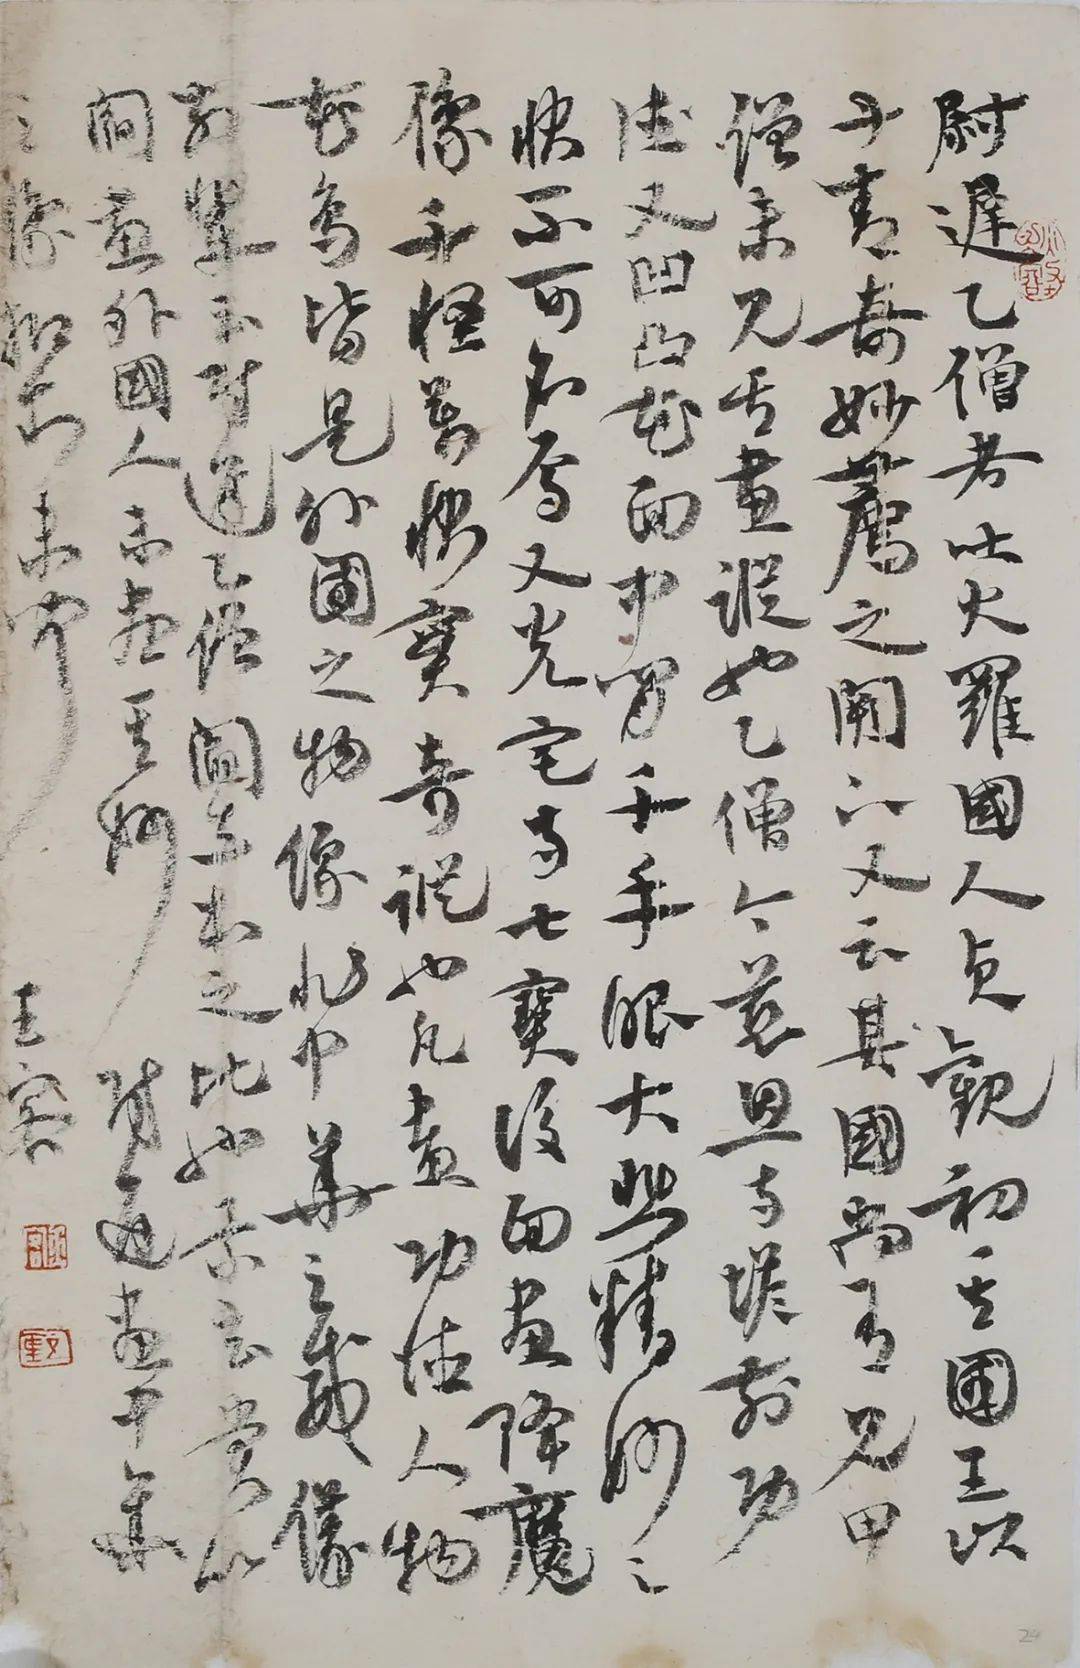 尉遲乙僧者吐火羅國人貞觀初其國王以
丹青奇妙薦之闕下又云其國尚有兄甲
僧未見其畫蹤也乙僧今慈恩寺塔前功
德又凹凸花面中間千手眼大悲精妙之
狀不可名焉又光宅寺七寶後面畫降魔
像千怪萬狀實奇蹤也凡畫功德人物
花鳥皆是外國之物像非中華之威儀
前輩云尉遲乙僧閻立本之比也景玄嘗以
閻畫外國人未盡其妙尉遲畫中華
之像抑亦未聞
王客
24